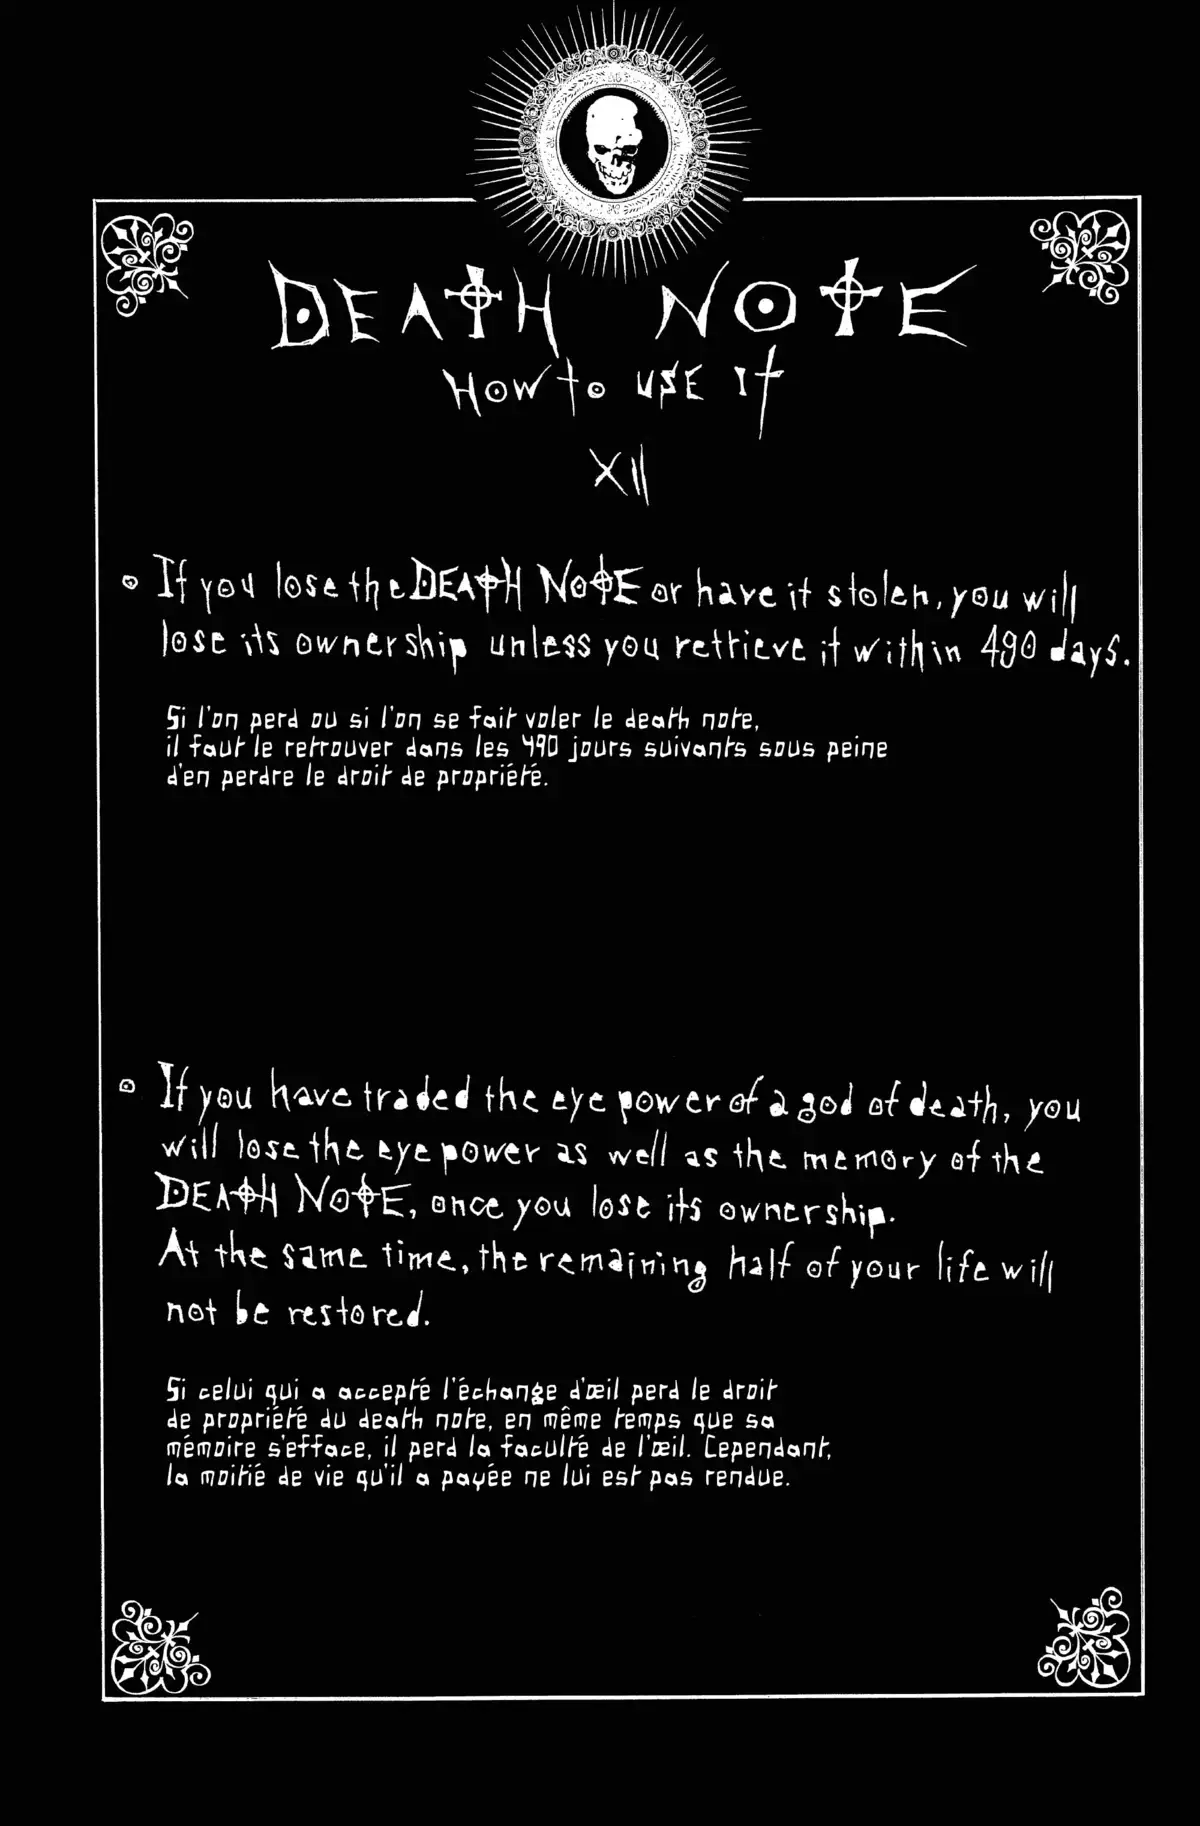 DEATH NOTE
HOW to USE It
XII
If you lose the DEATH NOTE or have it stolen, you will
lose its ownership unless you retrieve it within 490 days.
Si l'on perd ou si l'on se fait voler le death note,
il faut le retrouver dans les 490 jours suivants sous peine
d'en perdre le droit de propriété.
If you have traded the eye power of a god of death, you
will lose the eye power as well as the memory of the
DEATH NOTE, once you lose its ownership.
At the same time, the remaining half of your life will
not be restored.
Si celui qui a accepté l'échange d'œil perd le droit
de propriété du death note, en même temps que sa
mémoire s'efface, il perd la faculté de l'œil. Cependant,
la moitié de vie qu'il a payée ne lui est pas rendue.